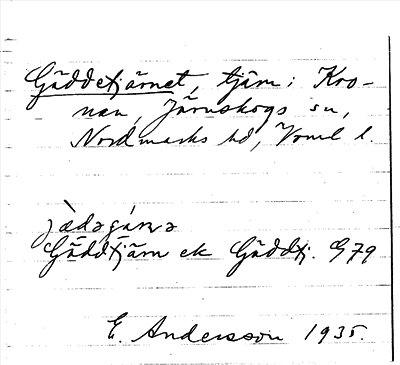 Gäddetjärnet, tjärn i Kro-
nan, Järnskogs sn,
Nordmarks hd, Vrml l.
jæ̀dəçá̀rṇə
Gäddtjärn ek Gäddtj. G79
E. Andersson 1935.